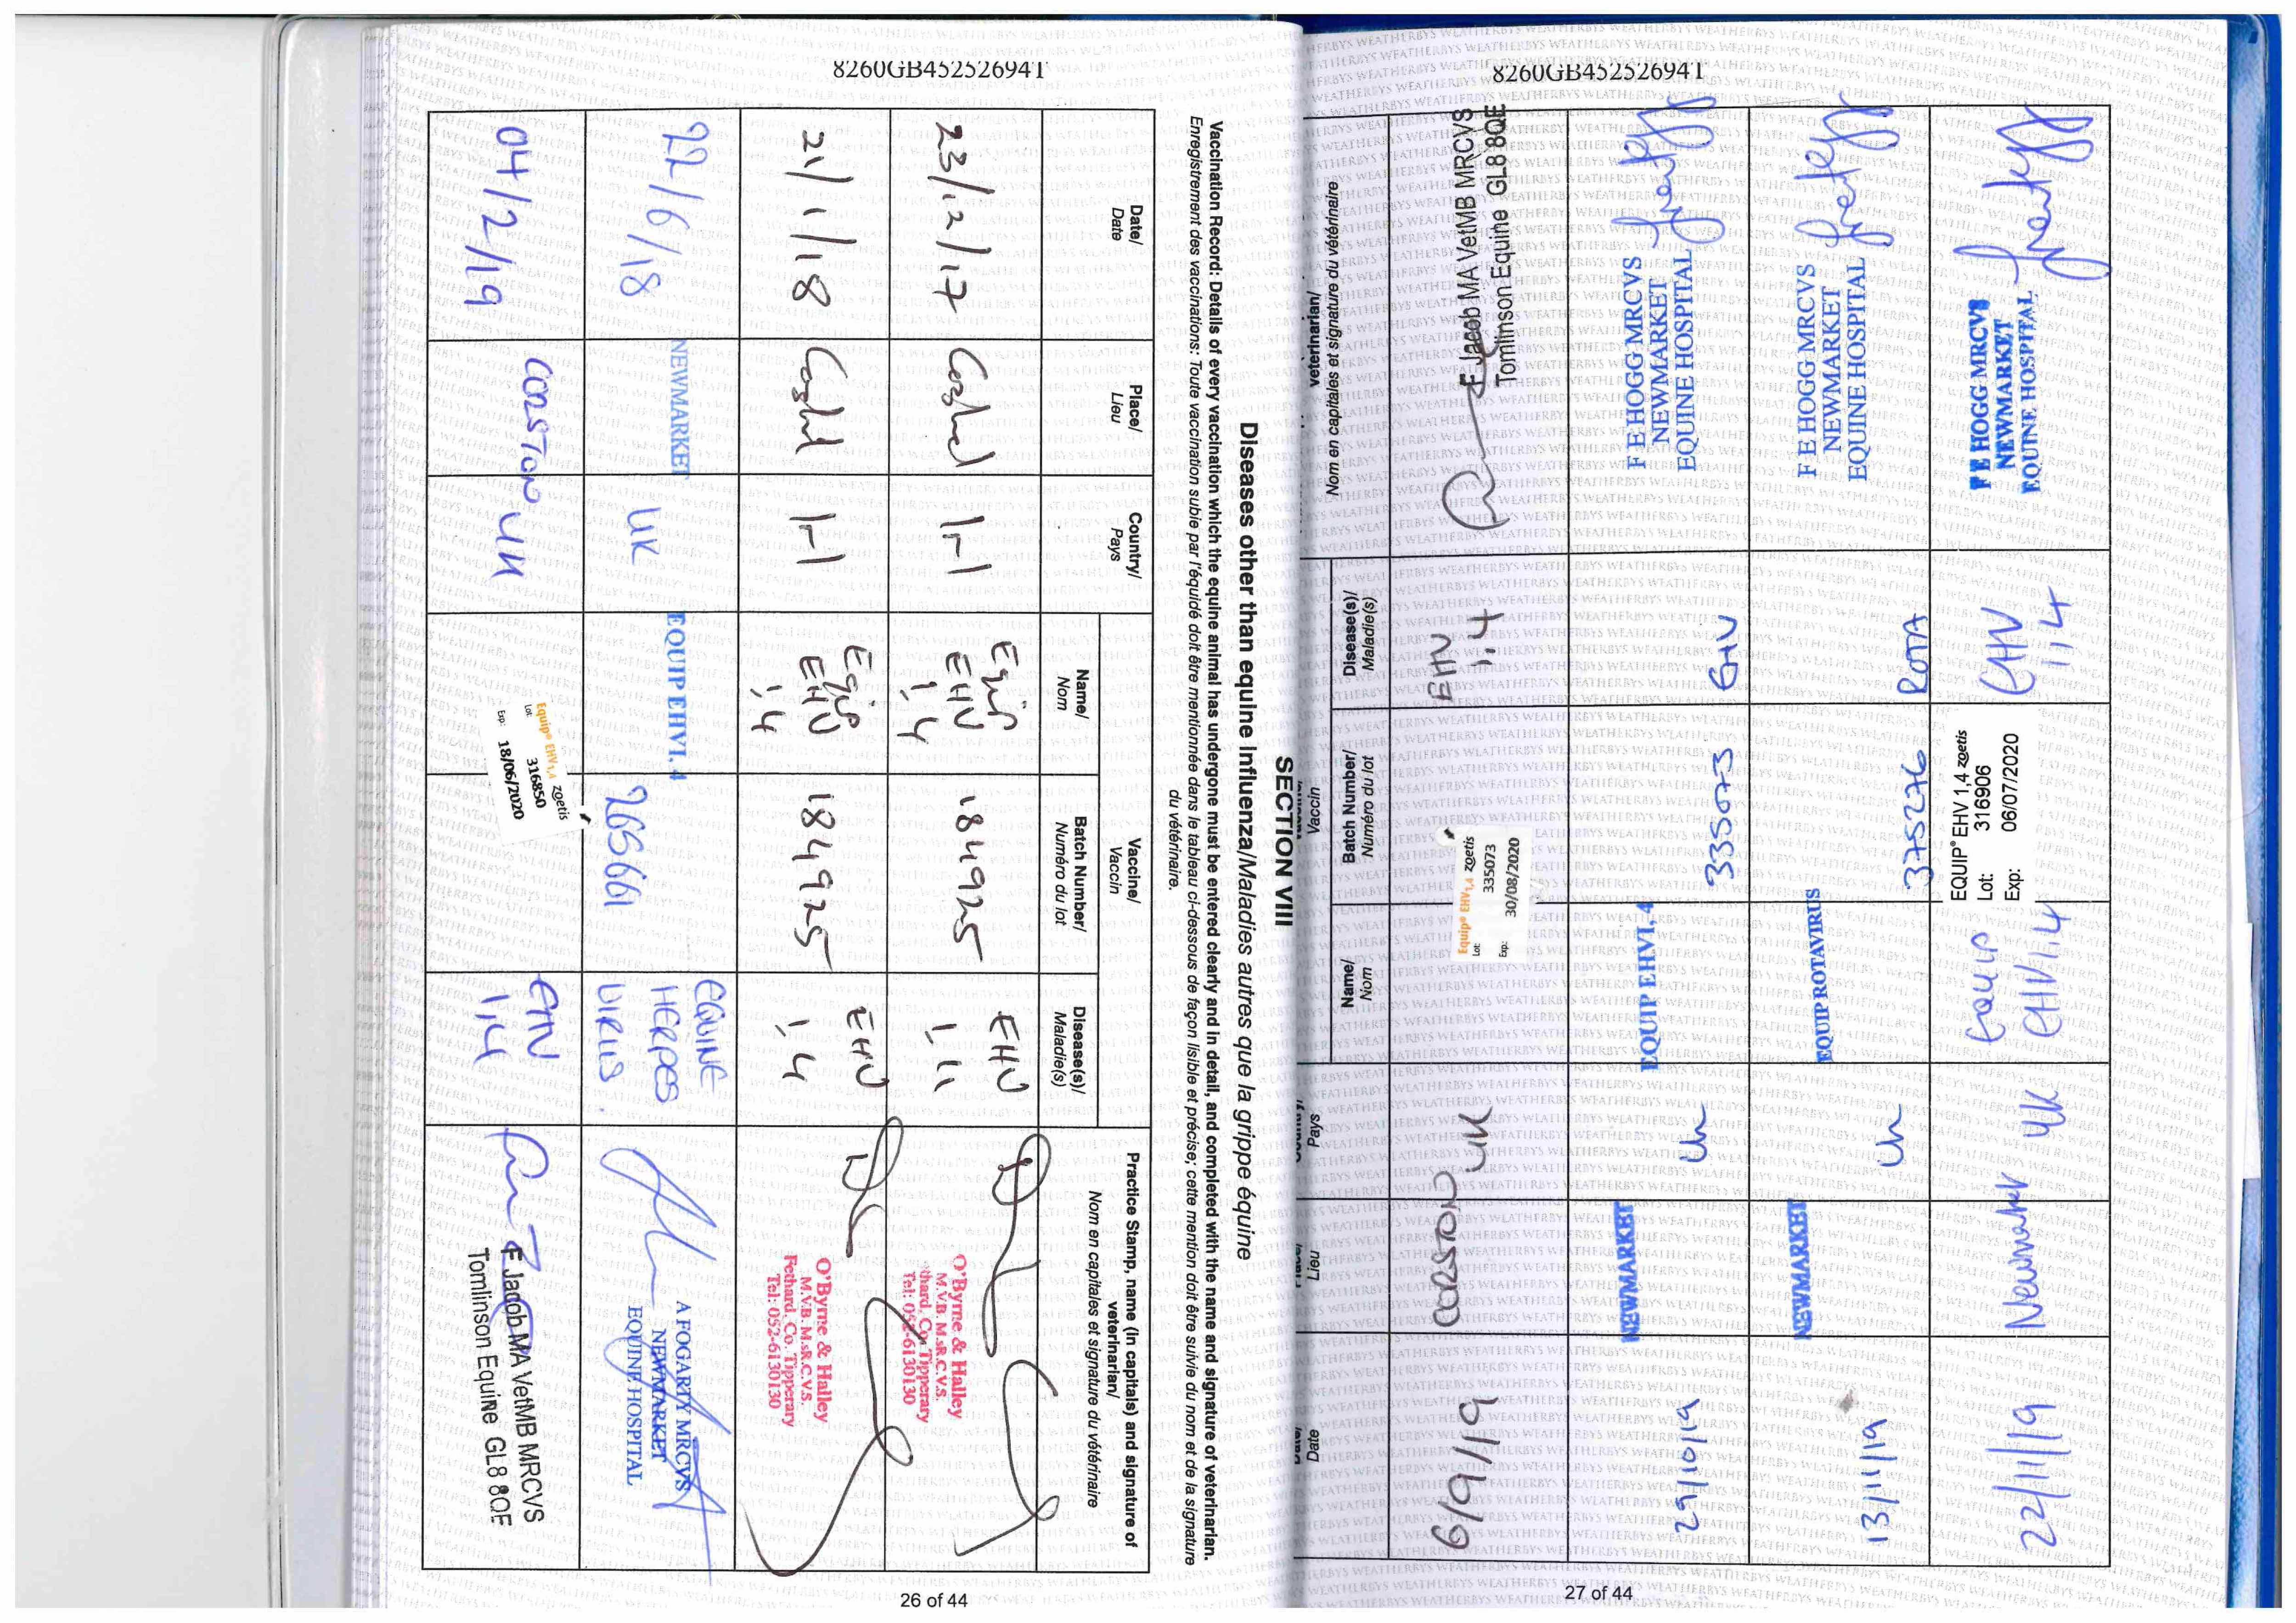 8260GB45252694T
SECTION VIII
Diseases other than equine influenza/Maladies autres que la grippe équine
Vaccination Record: Details of every vaccination which the equine animal has undergone must be entered clearly and in detail, and completed with the name and signature of veterinarian.
Enregistrement des vaccinations: Toute vaccination subie par l'équidé doit être mentionnée dans le tableau ci-dessous de façon lisible et précise; cette mention doit être suivie du nom et de la signature
du vétérinaire.
Date/
Date
Place/
Lieu
Country/
Pays
Vaccine/
Vaccin
Name/
Nom
Batch Number/
Numéro du lot
Disease(s)/
Maladie(s)
Practice Stamp, name (in capitals) and signature of
veterinarian/
Nom en capitales et signature du vétérinaire
23/12/17
Cashel
Irl
Equip
EHV
1,4
184925
EHV
1,4
O'Byrne & Halley
M.V.B. M.sR.C.V.S.
thard, Co. Tipperary
Tel: 052-6130130
21/1/18
Cashel
Irl
Equip
EHV
1,4
184925
EHV
1,4
O'Byrne & Halley
M.V.B. M.sR.C.V.S.
Fethard, Co. Tipperary
Tel: 052-6130130
22/6/18
NEWMARKET
UK
EQUIP EHV1,4
265661
EQUINE
HERPES
VIRUS.
A FOGARTY MRCVS
NEWMARKET
EQUINE HOSPITAL
04/2/19
CORSTON
UK
Equip® EHV1,4 zoetis
Lot: 316850
Exp: 18/06/2020
EHV
1,4
F Jacob MA VetMB MRCVS
Tomlinson Equine GL8 8QE
26 of 44
8260GB45252694T
Date
Lieu
Pays
Vaccin
Name/
Nom
Batch Number/
Numéro du lot
Disease(s)/
Maladie(s)
veterinarian/
Nom en capitales et signature du vétérinaire
6/9/19
CORSTON
UK
Equip® EHV1,4 zoetis
Lot: 335073
Exp: 30/08/2020
EHV
1.4
F Jacob MA VetMB MRCVS
Tomlinson Equine GL8 8QE
29/10/19
NEWMARKET
Uk
EQUIP EHV1,4
335073
EHV
F E HOGG MRCVS
NEWMARKET
EQUINE HOSPITAL
13/11/19
NEWMARKET
Uk
EQUIP ROTAVIRUS
375276
ROTA
F E HOGG MRCVS
NEWMARKET
EQUINE HOSPITAL
22/11/19
Newmarket
UK
Equip
EHV1,4
EQUIP® EHV 1,4 zoetis
Lot: 316906
Exp: 06/07/2020
EHV
1,4
F E HOGG MRCVS
NEWMARKET
EQUINE HOSPITAL
27 of 44